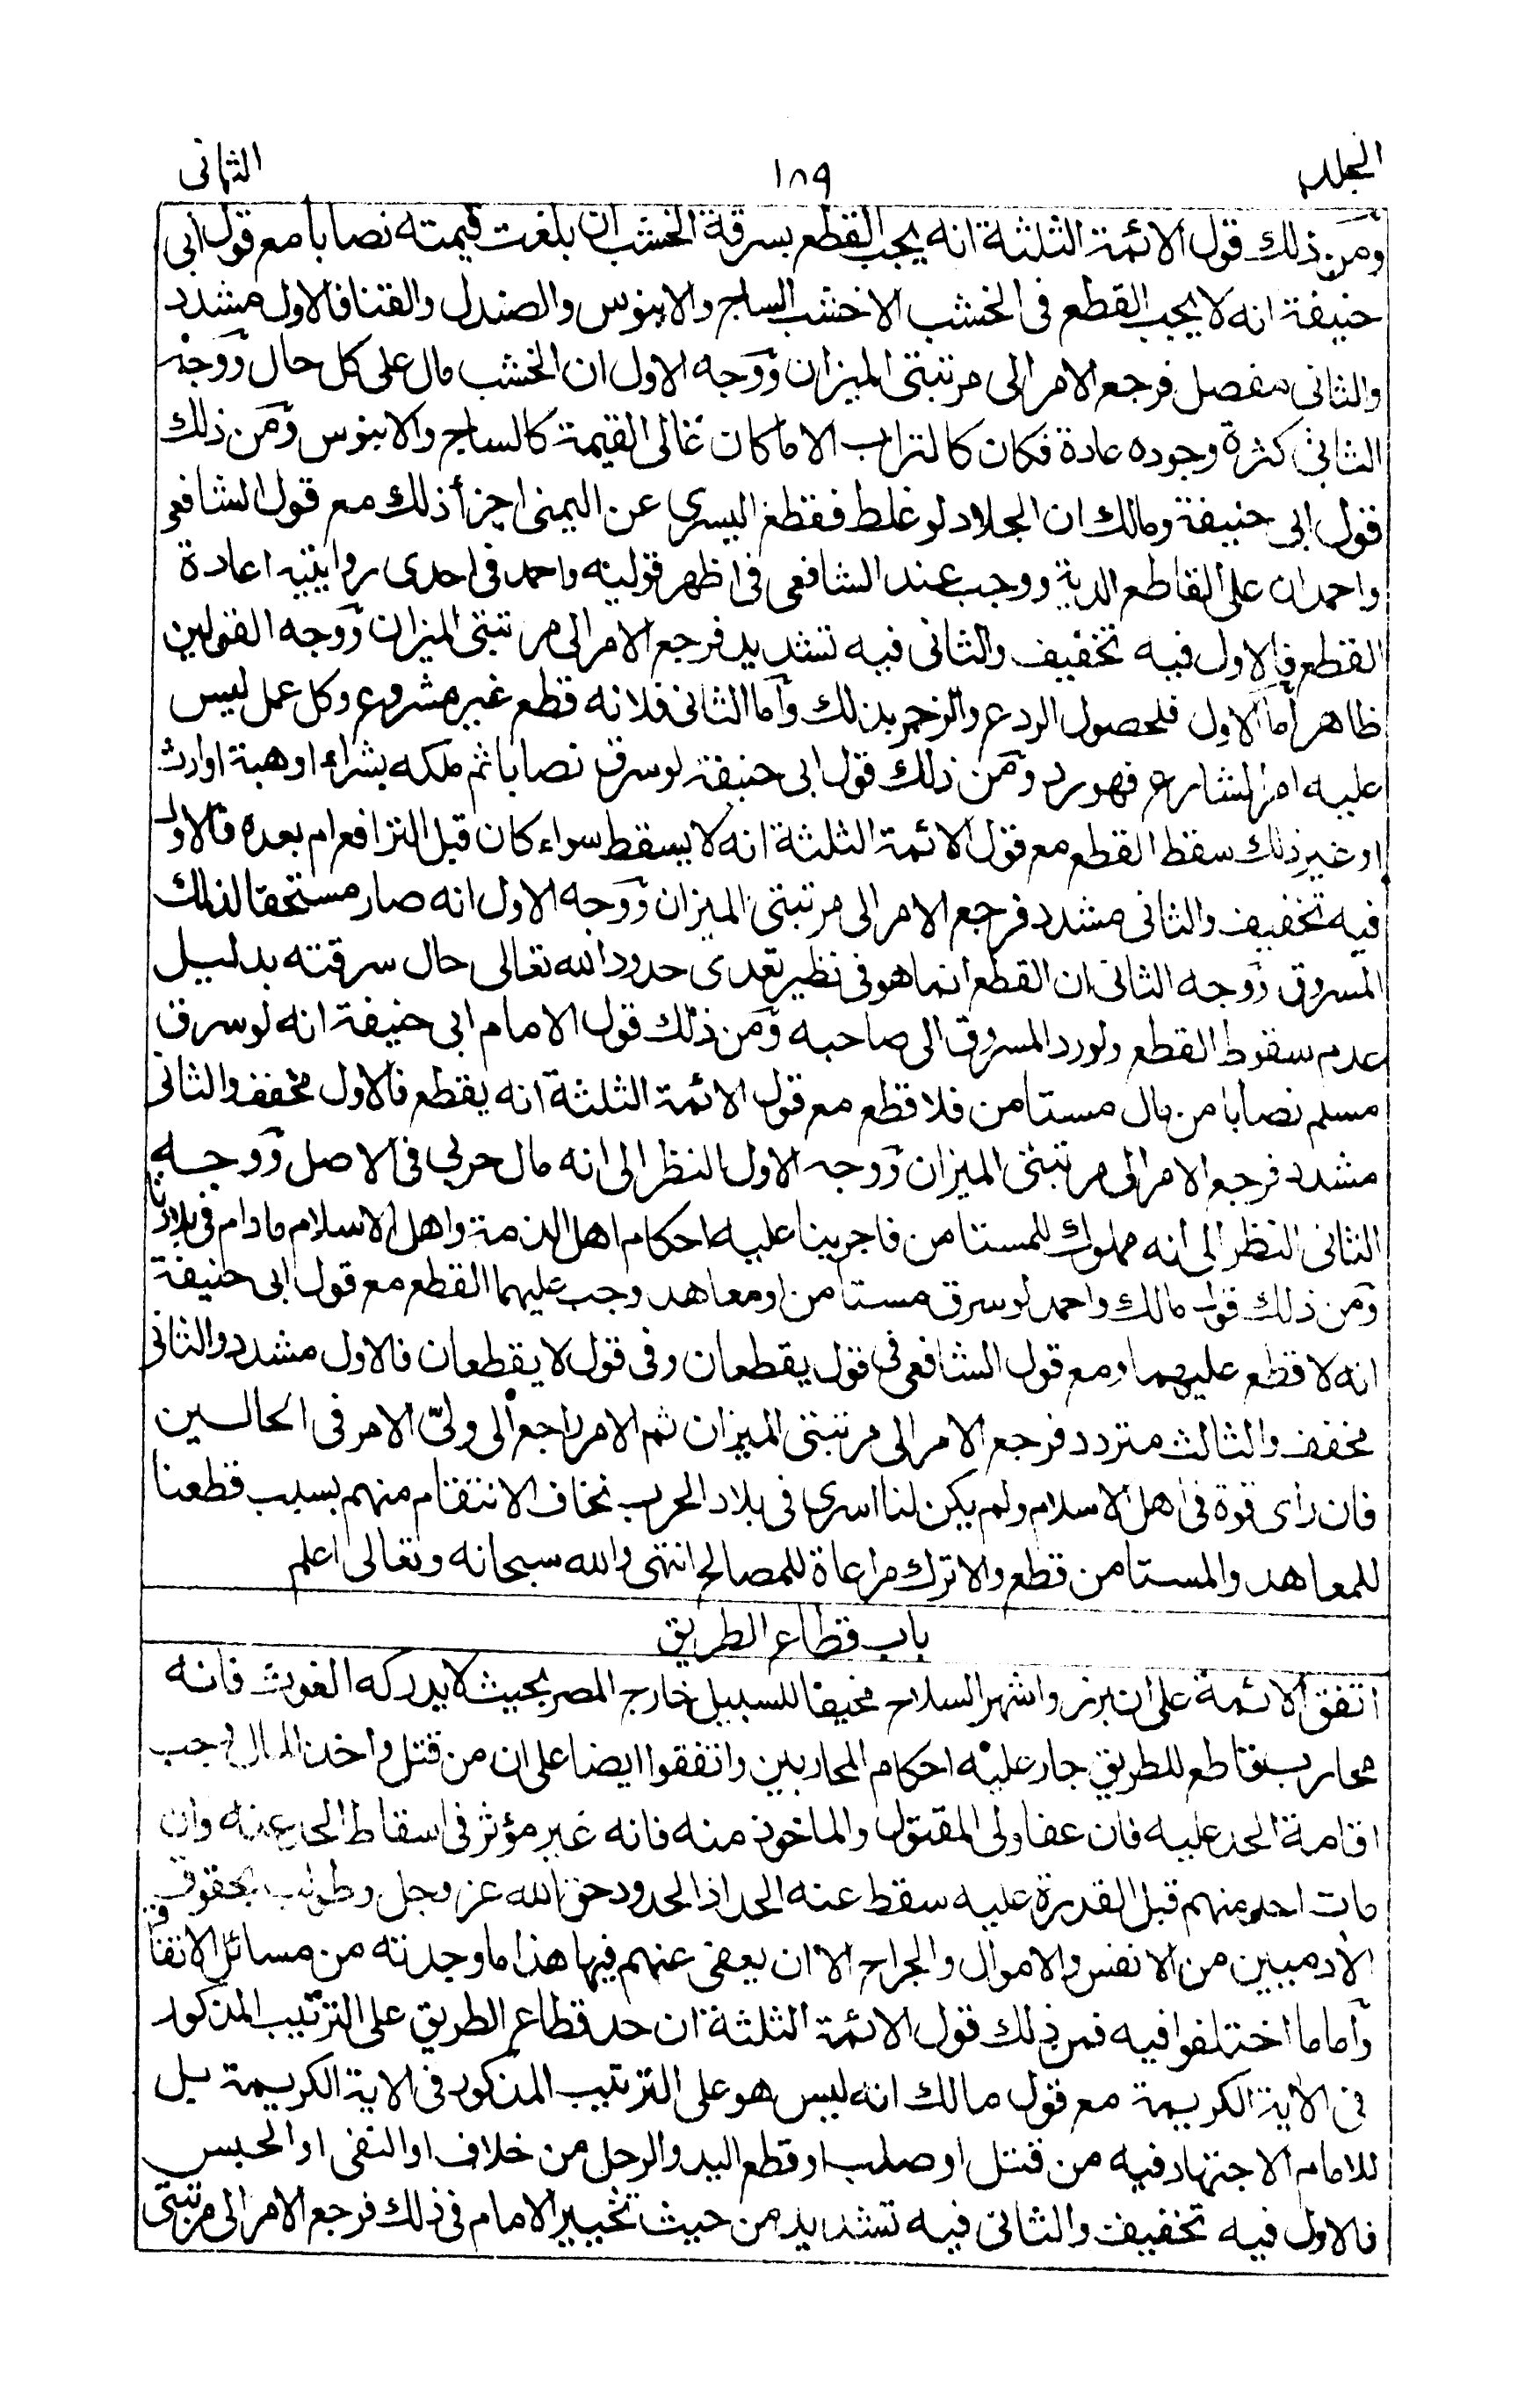 المجلد
١٨٩
الثانى
ومن ذلك قول الائمة الثلثة انه يجب القطع بسرقة الخشب ان بلغت قيمته نصابا مع قول ابى
حنيفة انه لا يجب القطع فى الخشب الا خشب الساج والابنوس والصندل والقنا فالاول مشدد
والثانى مفصل فرجع الامر الى مرتبتى الميزان ووجه الاول ان الخشب مال على كل حال ووجه
الثانى كثرة وجوده عادة فكان كالتراب الا ما كان غالى القيمة كالساج والابنوس ومن ذلك
قول ابى حنيفة ومالك ان الجلاد لو غلط فقطع اليسرى عن اليمنى اجزأ ذلك مع قول الشافعى
واحمد ان على القاطع الدية ووجب عند الشافعى فى اظهر قوليه واحمد فى احدى روايتيه اعادة
القطع فالاول فيه تخفيف والثانى فيه تشديد فرجع الامر الى مرتبتى الميزان ووجه القولين
ظاهر اما الاول فلحصول الردع والزجر بذلك واما الثانى فلانه قطع غير مشروع وكل عمل ليس
عليه امر الشارع فهو رد ومن ذلك قول ابى حنيفة لو سرق نصابا ثم ملكه بشراء او هبة او ارث
او غير ذلك سقط القطع مع قول الائمة الثلثة انه لا يسقط سواء كان قبل الترافع ام بعده فالاول
فيه تخفيف والثانى مشدد فرجع الامر الى مرتبتى الميزان ووجه الاول انه صار مستحقا لذلك
المسروق ووجه الثانى ان القطع انما هو فى نظير تعدى حدود الله تعالى حال سرقته بدليل
عدم سقوط القطع ولو رد المسروق الى صاحبه ومن ذلك قول الامام ابى حنيفة انه لو سرق
مسلم نصابا من مال مستامن فلا قطع مع قول الائمة الثلثة انه يقطع فالاول مخفف والثانى
مشدد فرجع الامر الى مرتبتى الميزان ووجه الاول النظر الى انه مال حربى فى الاصل ووجه
الثانى النظر الى انه مملوك للمستامن فاجرينا عليه احكام اهل الذمة واهل الاسلام مادام فى بلادنا
ومن ذلك قول مالك واحمد لو سرق مستامن او معاهد وجب عليهما القطع مع قول ابى حنيفة
انه لا قطع عليهما ومع قول الشافعى فى قول يقطعان وفى قول لا يقطعان فالاول مشدد والثانى
مخفف والثالث متردد فرجع الامر الى مرتبتى الميزان ثم الامر راجع الى ولىّ الامر فى الحالين
فان راى قوة فى اهل الاسلام ولم يكن لنا اسرى فى بلاد الحرب نخاف الانتقام منهم بسبب قطعنا
للمعاهد والمستامن قطع والا ترك مراعاة للمصالح انتهى والله سبحانه وتعالى اعلم
باب قطاع الطريق
اتفق الائمة على ان برز واشهر السلاح مخيفا للسبيل خارج المصر بحيث لا يدركه الغوث فانه
محارب قاطع للطريق جار عليه احكام المحاربين واتفقوا ايضا على ان من قتل واخذ المال وجب
اقامة الحد عليه فان عفا ولى المقتول والماخوذ منه فانه غير مؤثر فى اسقاط الحد عنه وان
مات احد منهم قبل القدرة عليه سقط عنه الحد اذ الحدود حق الله عز وجل وطولب بحقوق
الادميين من الانفس والاموال والجراح الا ان يعفى عنهم فيها هذا ما وجدته من مسائل الاتفاق
واما ما اختلفوا فيه فمن ذلك قول الائمة الثلثة ان حد قطاع الطريق على الترتيب المذكور
فى الاية الكريمة مع قول مالك انه ليس هو على الترتيب المذكور فى الاية الكريمة بل
للامام الاجتهاد فيه من قتل او صلب او قطع اليد والرجل من خلاف او النفى او الحبس
فالاول فيه تخفيف والثانى فيه تشديد من حيث تخيير الامام فى ذلك فرجع الامر الى مرتبتى